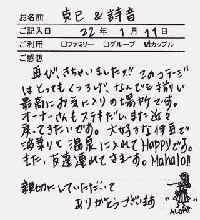 お名前 貞巳 & 詩音
ご記入日 22年 1月 19日
ご利用 □ファミリー □グループ ☑カップル
ご感想
再び!きちゃいましたッ!! このコテージ
はとってもくつろげ、なんでも揃い
最高にお気に入りの場所です。
オーナーさんもステキだし、また近々
戻ってきたいです。大好きな伊豆で
波乗りして温泉に入れてHappyです。
また、友達連れてきまーす。Mahalo!!
親切にしていただいて
ありがとうございます
ALOHA